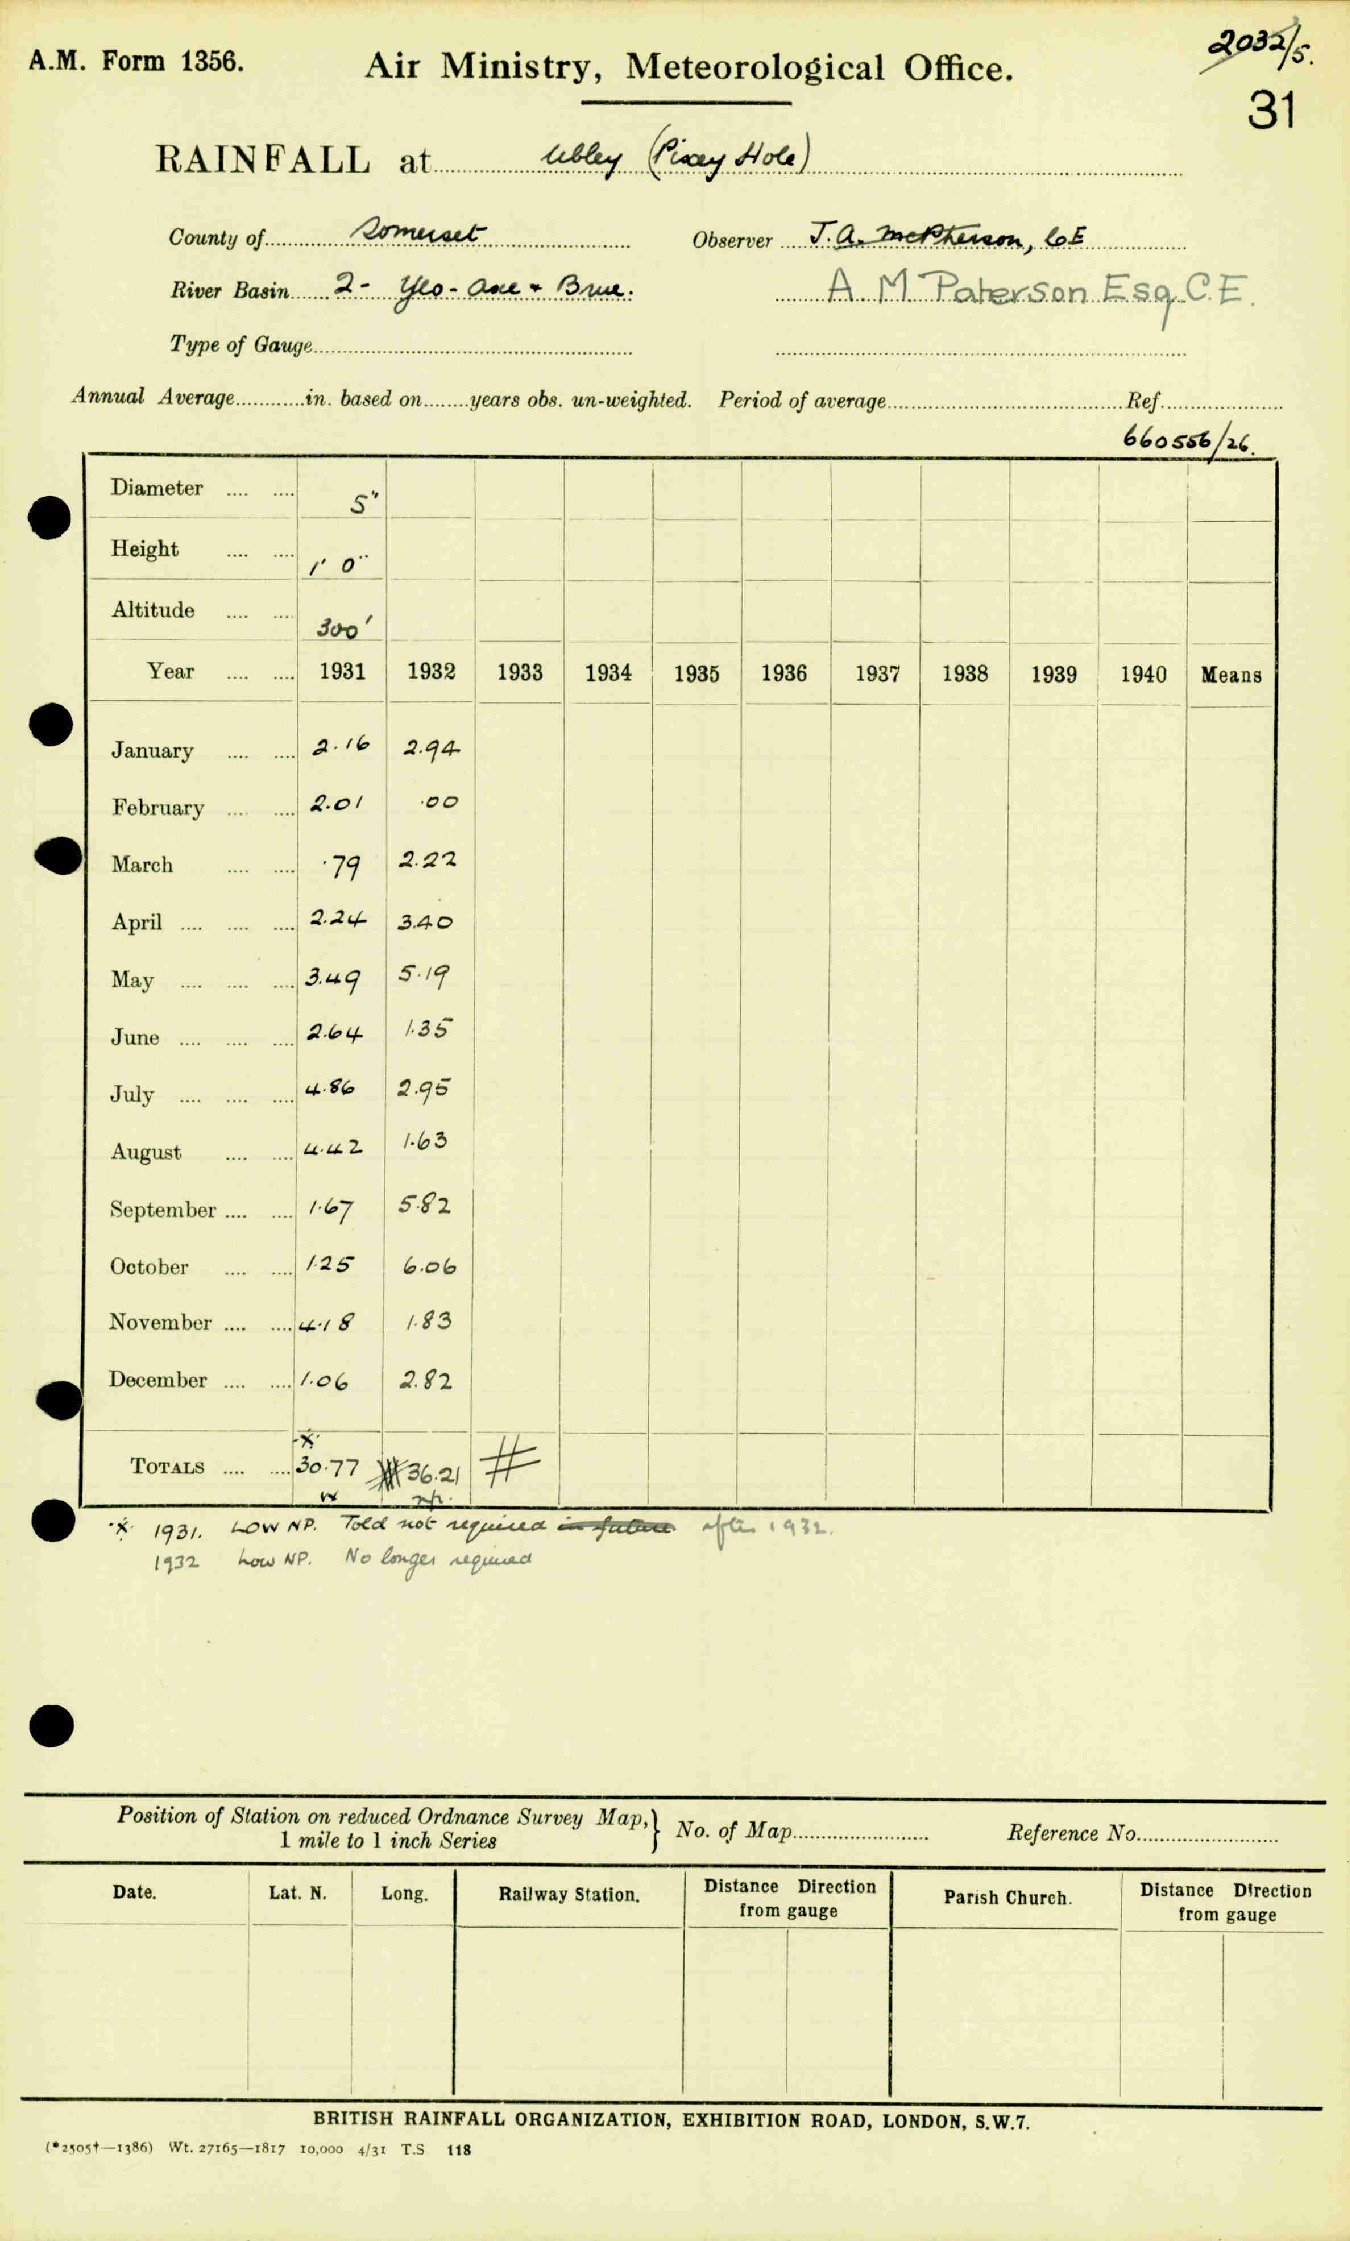 A.M. Form 1356.
Air Ministry, Meteorological Office.
2032/5.
31
RAINFALL at Ubley (Pixey Hole)
County of Somerset Observer J. A. McPherson, CE
River Basin 2- Yeo - Axe + Brue. A. M Paterson Esq C.E.
Type of Gauge
Annual Average in. based on years obs. un-weighted. Period of average Ref.
660556/26.
Diameter .... .... 5"
Height .... .... 1' 0"
Altitude .... .... 300'
Year .... .... 1931 1932 1933 1934 1935 1936 1937 1938 1939 1940 Means
January .... .... 2.16 2.94
February .... .... 2.01 .00
March .... .... .79 2.22
April .... .... .... 2.24 3.40
May .... .... .... 3.49 5.19
June .... .... .... 2.64 1.35
July .... .... .... 4.86 2.95
August .... .... 4.42 1.63
September .... .... 1.67 5.82
October .... .... 1.25 6.06
November .... .... 4.18 1.83
December .... .... 1.06 2.82
TOTALS .... .... 30.77 36.21 #
1931. LOW NP. Told not required in future after 1932.
1932 Low NP. No longer required
Position of Station on reduced Ordnance Survey Map, } No. of Map Reference No.
1 mile to 1 inch Series
Date. Lat. N. Long. Railway Station. Distance Direction from gauge Parish Church. Distance Direction from gauge
BRITISH RAINFALL ORGANIZATION, EXHIBITION ROAD, LONDON, S.W.7.
(*2505†—1386) Wt. 27165—1817 10,000 4/31 T.S 118